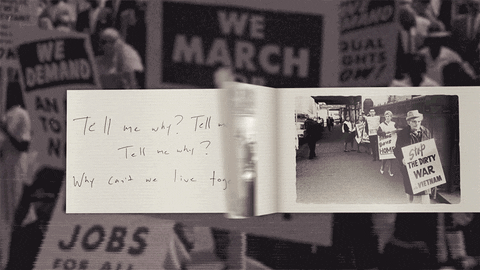 WE
MARCH
FOR
WE
DEMAND
AN
TO
DEMAND
QUAL
GHTS
OW!
Tell me why? Tell
Tell me why?
Why can't we live tog
Stop
THE DIRTY
WAR
IN VIETNAM
JOBS
FOR ALL